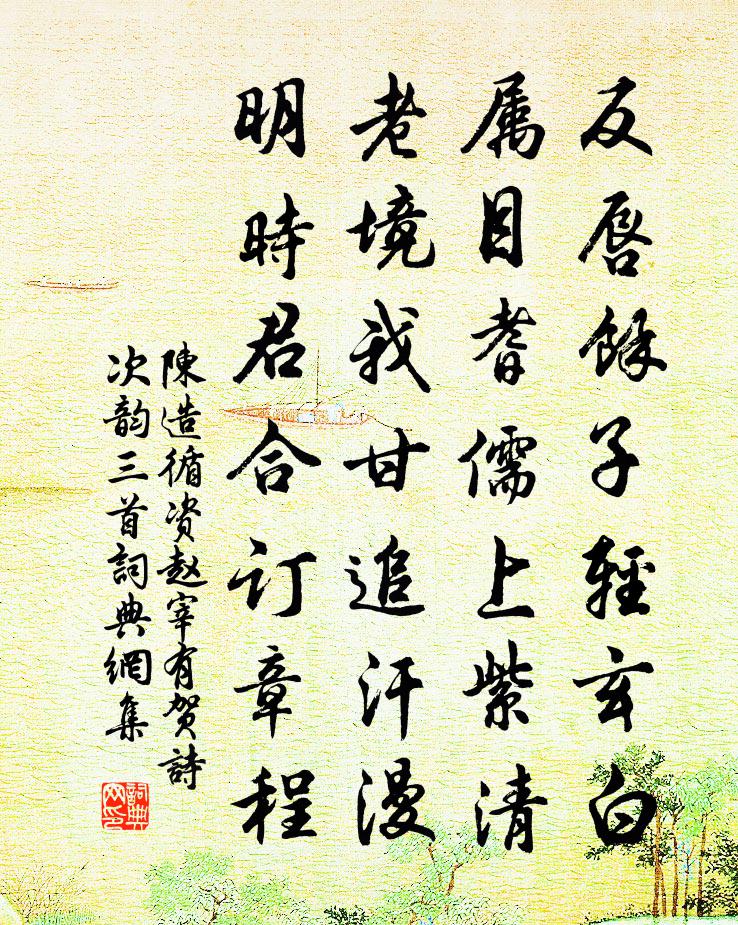 反唇餘子輕玄白
属目耆儒上紫清
老境我甘追汗漫
明時君合订章程
陳造循资赵宰有贺詩
次韵三首詞典網集
詞典
网印